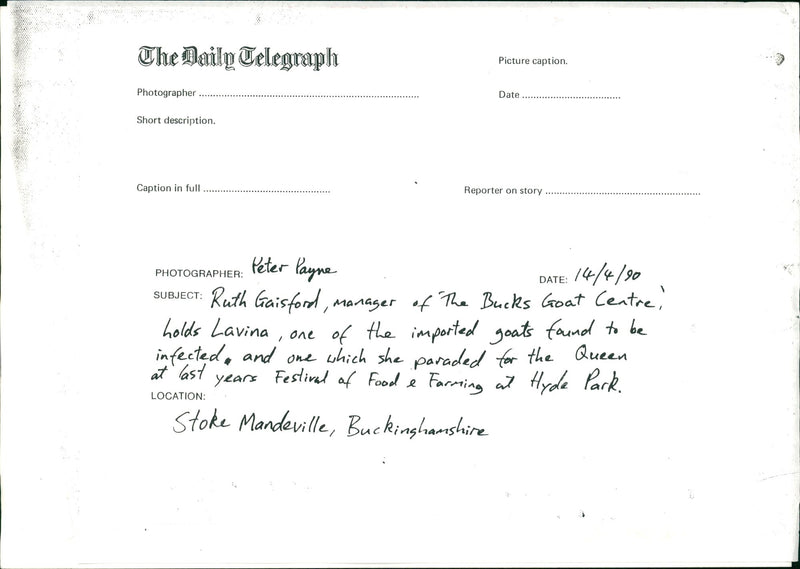 The Daily Telegraph
Picture caption.
Photographer ..............................................................................
Date ...................................
Short description.
Caption in full .............................................
Reporter on story .......................................................
PHOTOGRAPHER: Peter Payne
DATE: 14/4/90
SUBJECT: Ruth Gaisford, manager of 'The Bucks Goat Centre',
holds Lavina, one of the imported goats found to be
infected, and one which she paraded for the Queen
at last years Festival of Food & Farming at Hyde Park.
LOCATION:
Stoke Mandeville, Buckinghamshire